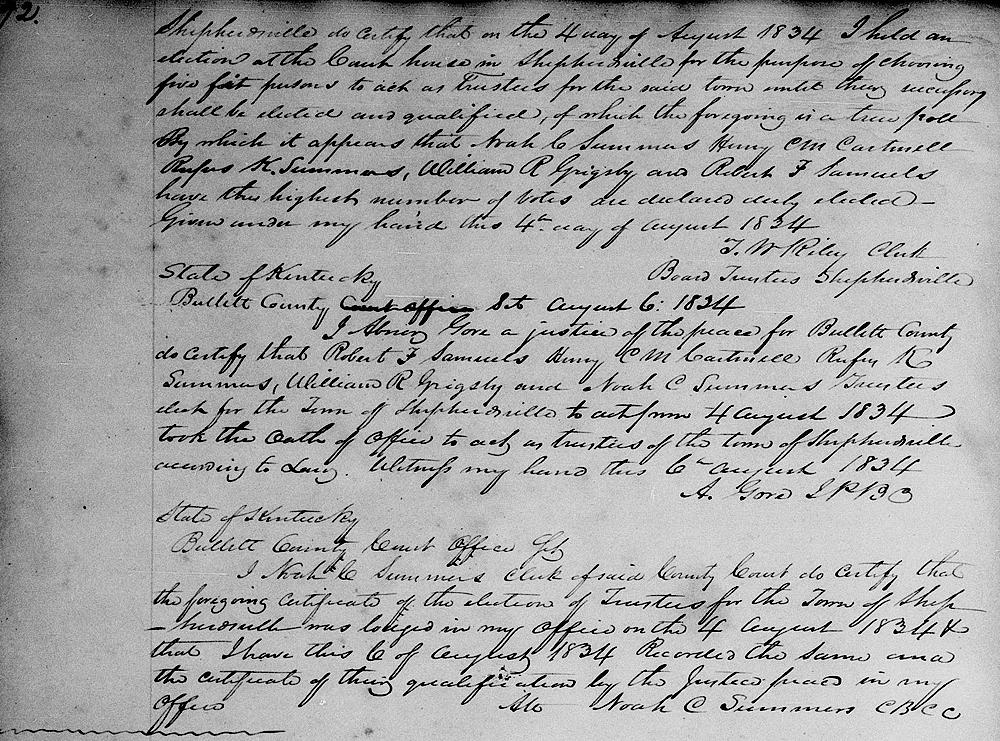 72.
Shepherdsville do certify that on the 4 day of August 1834 I held an
election at the Court house in Shepherdsville for the purpose of choosing
five fit persons to act as Trustees for the said town until their successors
shall be elected and qualified, of which the foregoing is a true poll
By which it appears that Noah C Summers Henry C M Cartmell
Rufus K. Summers, William R Grigsby and Robert F Samuels
have the highest number of votes are declared duly elected –
Given under my hand this 4th day of August 1834
J. W Riley Clerk
State of Kentucky Board Trustees Shepherdsville
Bullett County Court office Sct August 6: 1834
I Abner Gore a justice of the peace for Bullett County
do certify that Robert F Samuels Henry C M Cartmell Rufus K
Summers, William R Grigsby and Noah C Summers Trustees
elect for the Town of Shepherdsville to act from 4 August 1834
took the Oath of office to act as trustees of the town of Shepherdsville
according to Law. Witness my hand this 6th August 1834
A. Gore J P B C
State of Kentucky
Bullett County Court Office Sct
I Noah C Summers clerk of said County Court do certify that
the foregoing certificate of the election of Trustees for the Town of Shep
-herdsville was lodged in my office on the 4 August 1834 &
that I have this 6 of August 1834 Recorded the same and
the certificate of their qualification by the Justice peace in my
office Att Noah C Summers C B C C